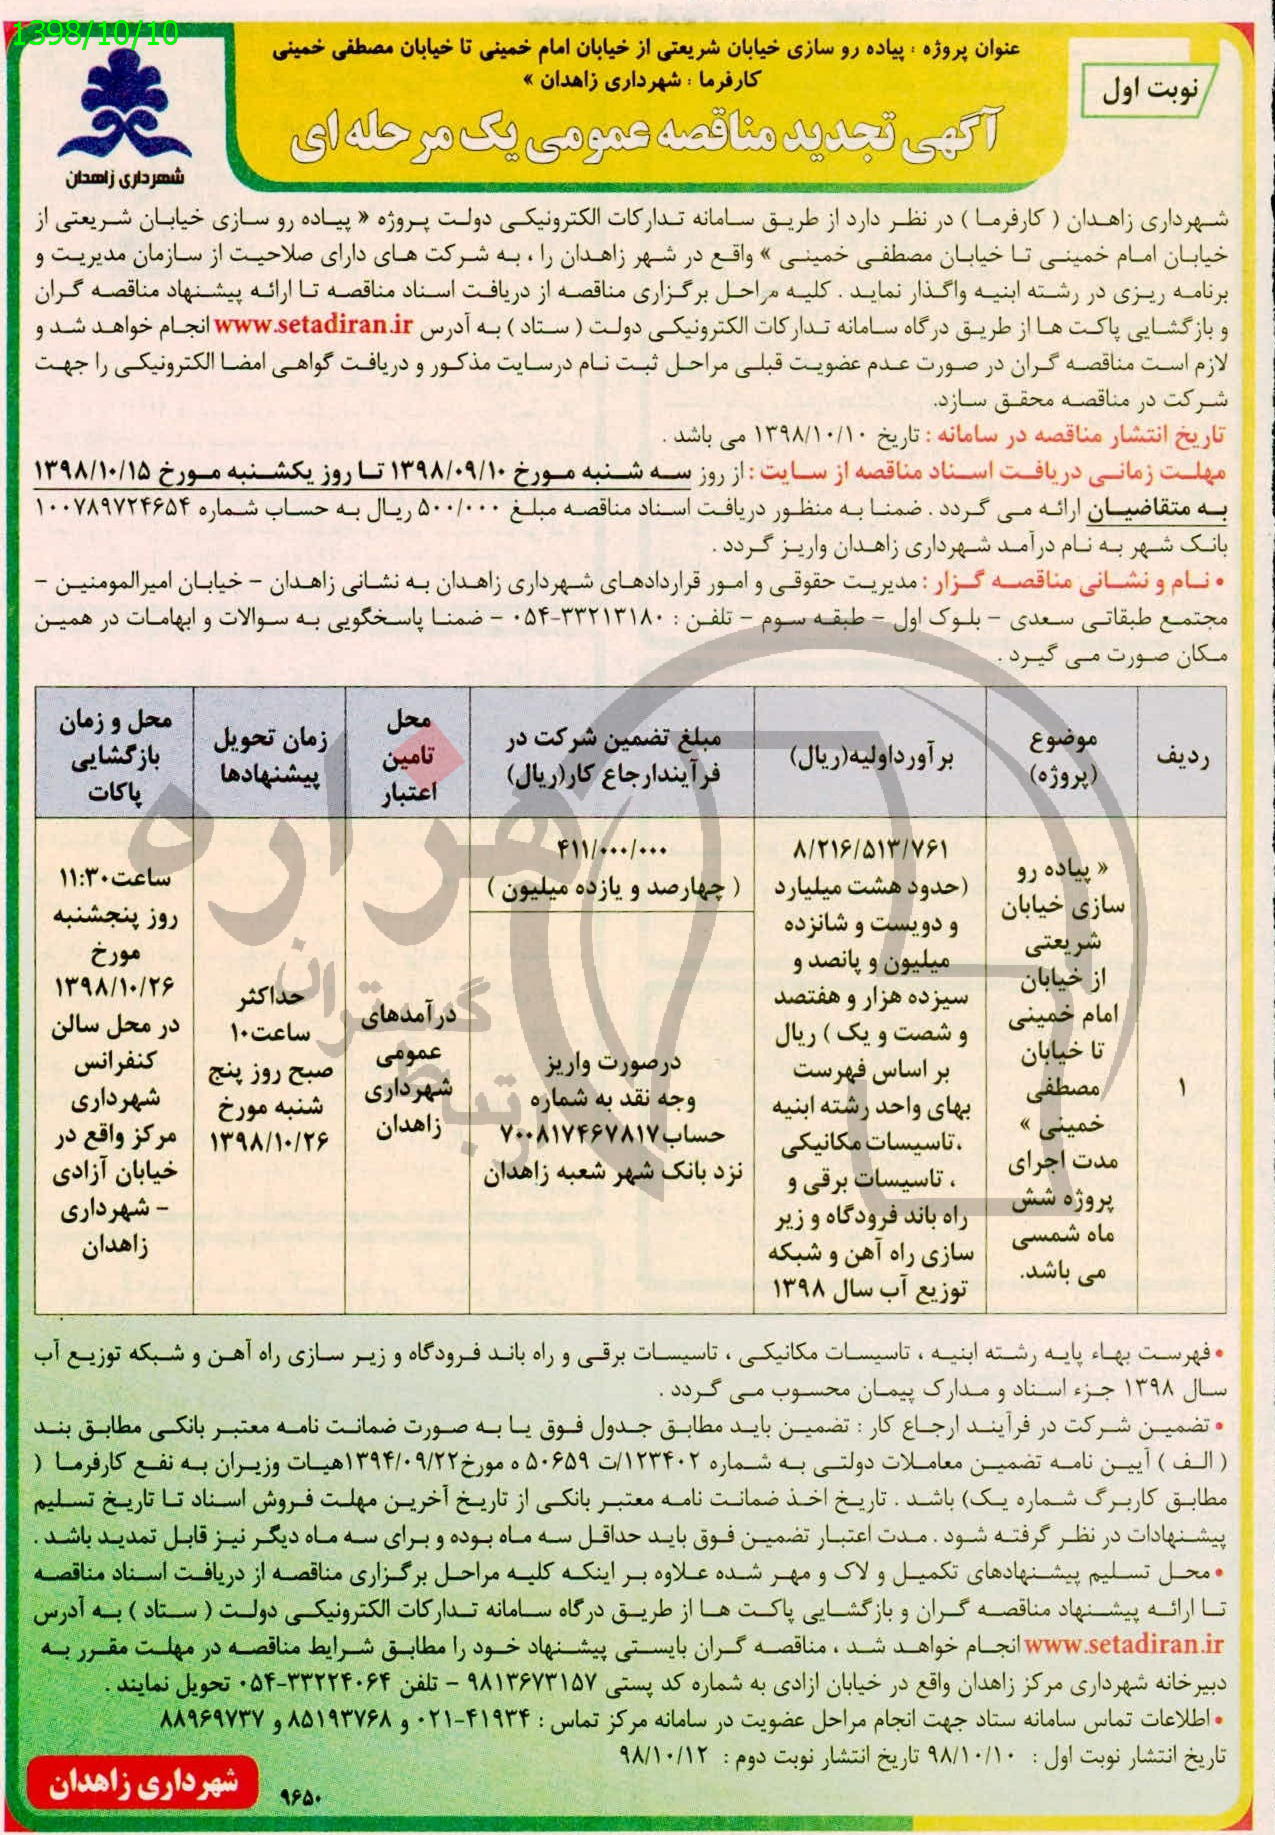 1398/10/10
عنوان پروژه : پیاده رو سازی خیابان شریعتی از خیابان امام خمینی تا خیابان مصطفی خمینی
کارفرما : شهرداری زاهدان »
نوبت اول
آگهی تجدید مناقصه عمومی یک مرحله ای
شهرداری زاهدان
شهرداری زاهدان ( کارفرما ) در نظر دارد از طریق سامانه تدارکات الکترونیکی دولت پروژه « پیاده رو سازی خیابان شریعتی از
خیابان امام خمینی تا خیابان مصطفی خمینی » واقع در شهر زاهدان را ، به شرکت های دارای صلاحیت از سازمان مدیریت و
برنامه ریزی در رشته ابنیه واگذار نماید . کلیه مراحل برگزاری مناقصه از دریافت اسناد مناقصه تا ارائه پیشنهاد مناقصه گران
و بازگشایی پاکت ها از طریق درگاه سامانه تدارکات الکترونیکی دولت ( ستاد ) به آدرس www.setadiran.ir انجام خواهد شد و
لازم است مناقصه گران در صورت عدم عضویت قبلی مراحل ثبت نام درسایت مذکور و دریافت گواهی امضا الکترونیکی را جهت
شرکت در مناقصه محقق سازد.
تاریخ انتشار مناقصه در سامانه : تاریخ ۱۳۹۸/۱۰/۱۰ می باشد .
مهلت زمانی دریافت اسناد مناقصه از سایت : از روز سه شنبه مورخ ۱۳۹۸/۰۹/۱۰ تا روز یکشنبه مورخ ۱۳۹۸/۱۰/۱۵
به متقاضیان ارائه می گردد . ضمنا به منظور دریافت اسناد مناقصه مبلغ ۵۰۰/۰۰۰ ریال به حساب شماره ۱۰۰۷۸۹۷۲۴۶۵۴
بانک شهر به نام درآمد شهرداری زاهدان واریز گردد .
• نام و نشانی مناقصه گزار : مدیریت حقوقی و امور قراردادهای شهرداری زاهدان به نشانی زاهدان – خیابان امیرالمومنین –
مجتمع طبقاتی سعدی – بلوک اول – طبقه سوم – تلفن : ۳۳۲۱۳۱۸۰-۰۵۴ – ضمنا پاسخگویی به سوالات و ابهامات در همین
مکان صورت می گیرد .
ردیف
موضوع
(پروژه)
برآورداولیه(ریال)
مبلغ تضمین شرکت در
فرآیندارجاع کار(ریال)
محل
تامین
اعتبار
زمان تحویل
پیشنهادها
محل و زمان
بازگشایی
پاکات
۱
« پیاده رو
سازی خیابان
شریعتی
از خیابان
امام خمینی
تا خیابان
مصطفی
خمینی »
مدت اجرای
پروژه شش
ماه شمسی
می باشد.
۸/۲۱۶/۵۱۳/۷۶۱
(حدود هشت میلیارد
و دویست و شانزده
میلیون و پانصد و
سیزده هزار و هفتصد
و شصت و یک ) ریال
بر اساس فهرست
بهای واحد رشته ابنیه
،تاسیسات مکانیکی
، تاسیسات برقی و
راه باند فرودگاه و زیر
سازی راه آهن و شبکه
توزیع آب سال ۱۳۹۸
۴۱۱/۰۰۰/۰۰۰
( چهارصد و یازده میلیون )
درصورت واریز
وجه نقد به شماره
حساب۷۰۰۸۱۷۴۶۷۸۱۷
نزد بانک شهر شعبه زاهدان
درآمدهای
عمومی
شهرداری
زاهدان
حداکثر
ساعت۱۰
صبح روز پنج
شنبه مورخ
۱۳۹۸/۱۰/۲۶
ساعت۱۱:۳۰
روز پنجشنبه
مورخ
۱۳۹۸/۱۰/۲۶
در محل سالن
کنفرانس
شهرداری
مرکز واقع در
خیابان آزادی
– شهرداری
زاهدان
هزاره
گستران
• فهرست بهاء پایه رشته ابنیه ، تاسیسات مکانیکی ، تاسیسات برقی و راه باند فرودگاه و زیر سازی راه آهن و شبکه توزیع آب
سال ۱۳۹۸ جزء اسناد و مدارک پیمان محسوب می گردد .
• تضمین شرکت در فرآیند ارجاع کار : تضمین باید مطابق جدول فوق یا به صورت ضمانت نامه معتبر بانکی مطابق بند
( الف ) آیین نامه تضمین معاملات دولتی به شماره ۱۲۳۴۰۲/ت ۵۰۶۵۹ ه مورخ۱۳۹۴/۰۹/۲۲هیات وزیران به نفع کارفرما (
مطابق کاربرگ شماره یک) باشد . تاریخ اخذ ضمانت نامه معتبر بانکی از تاریخ آخرین مهلت فروش اسناد تا تاریخ تسلیم
پیشنهادات در نظر گرفته شود . مدت اعتبار تضمین فوق باید حداقل سه ماه بوده و برای سه ماه دیگر نیز قابل تمدید باشد .
• محل تسلیم پیشنهادهای تکمیل و لاک و مهر شده علاوه بر اینکه کلیه مراحل برگزاری مناقصه از دریافت اسناد مناقصه
تا ارائه پیشنهاد مناقصه گران و بازگشایی پاکت ها از طریق درگاه سامانه تدارکات الکترونیکی دولت ( ستاد ) به آدرس
www.setadiran.ir انجام خواهد شد ، مناقصه گران بایستی پیشنهاد خود را مطابق شرایط مناقصه در مهلت مقرر به
دبیرخانه شهرداری مرکز زاهدان واقع در خیابان ازادی به شماره کد پستی ۹۸۱۳۶۷۳۱۵۷ – تلفن ۳۳۲۲۴۰۶۴-۰۵۴ تحویل نمایند .
• اطلاعات تماس سامانه ستاد جهت انجام مراحل عضویت در سامانه مرکز تماس : ۴۱۹۳۴-۰۲۱ و ۸۵۱۹۳۷۶۸ و ۸۸۹۶۹۷۳۷
تاریخ انتشار نوبت اول : ۹۸/۱۰/۱۰ تاریخ انتشار نوبت دوم : ۹۸/۱۰/۱۲
۹۶۵۰
شهرداری زاهدان